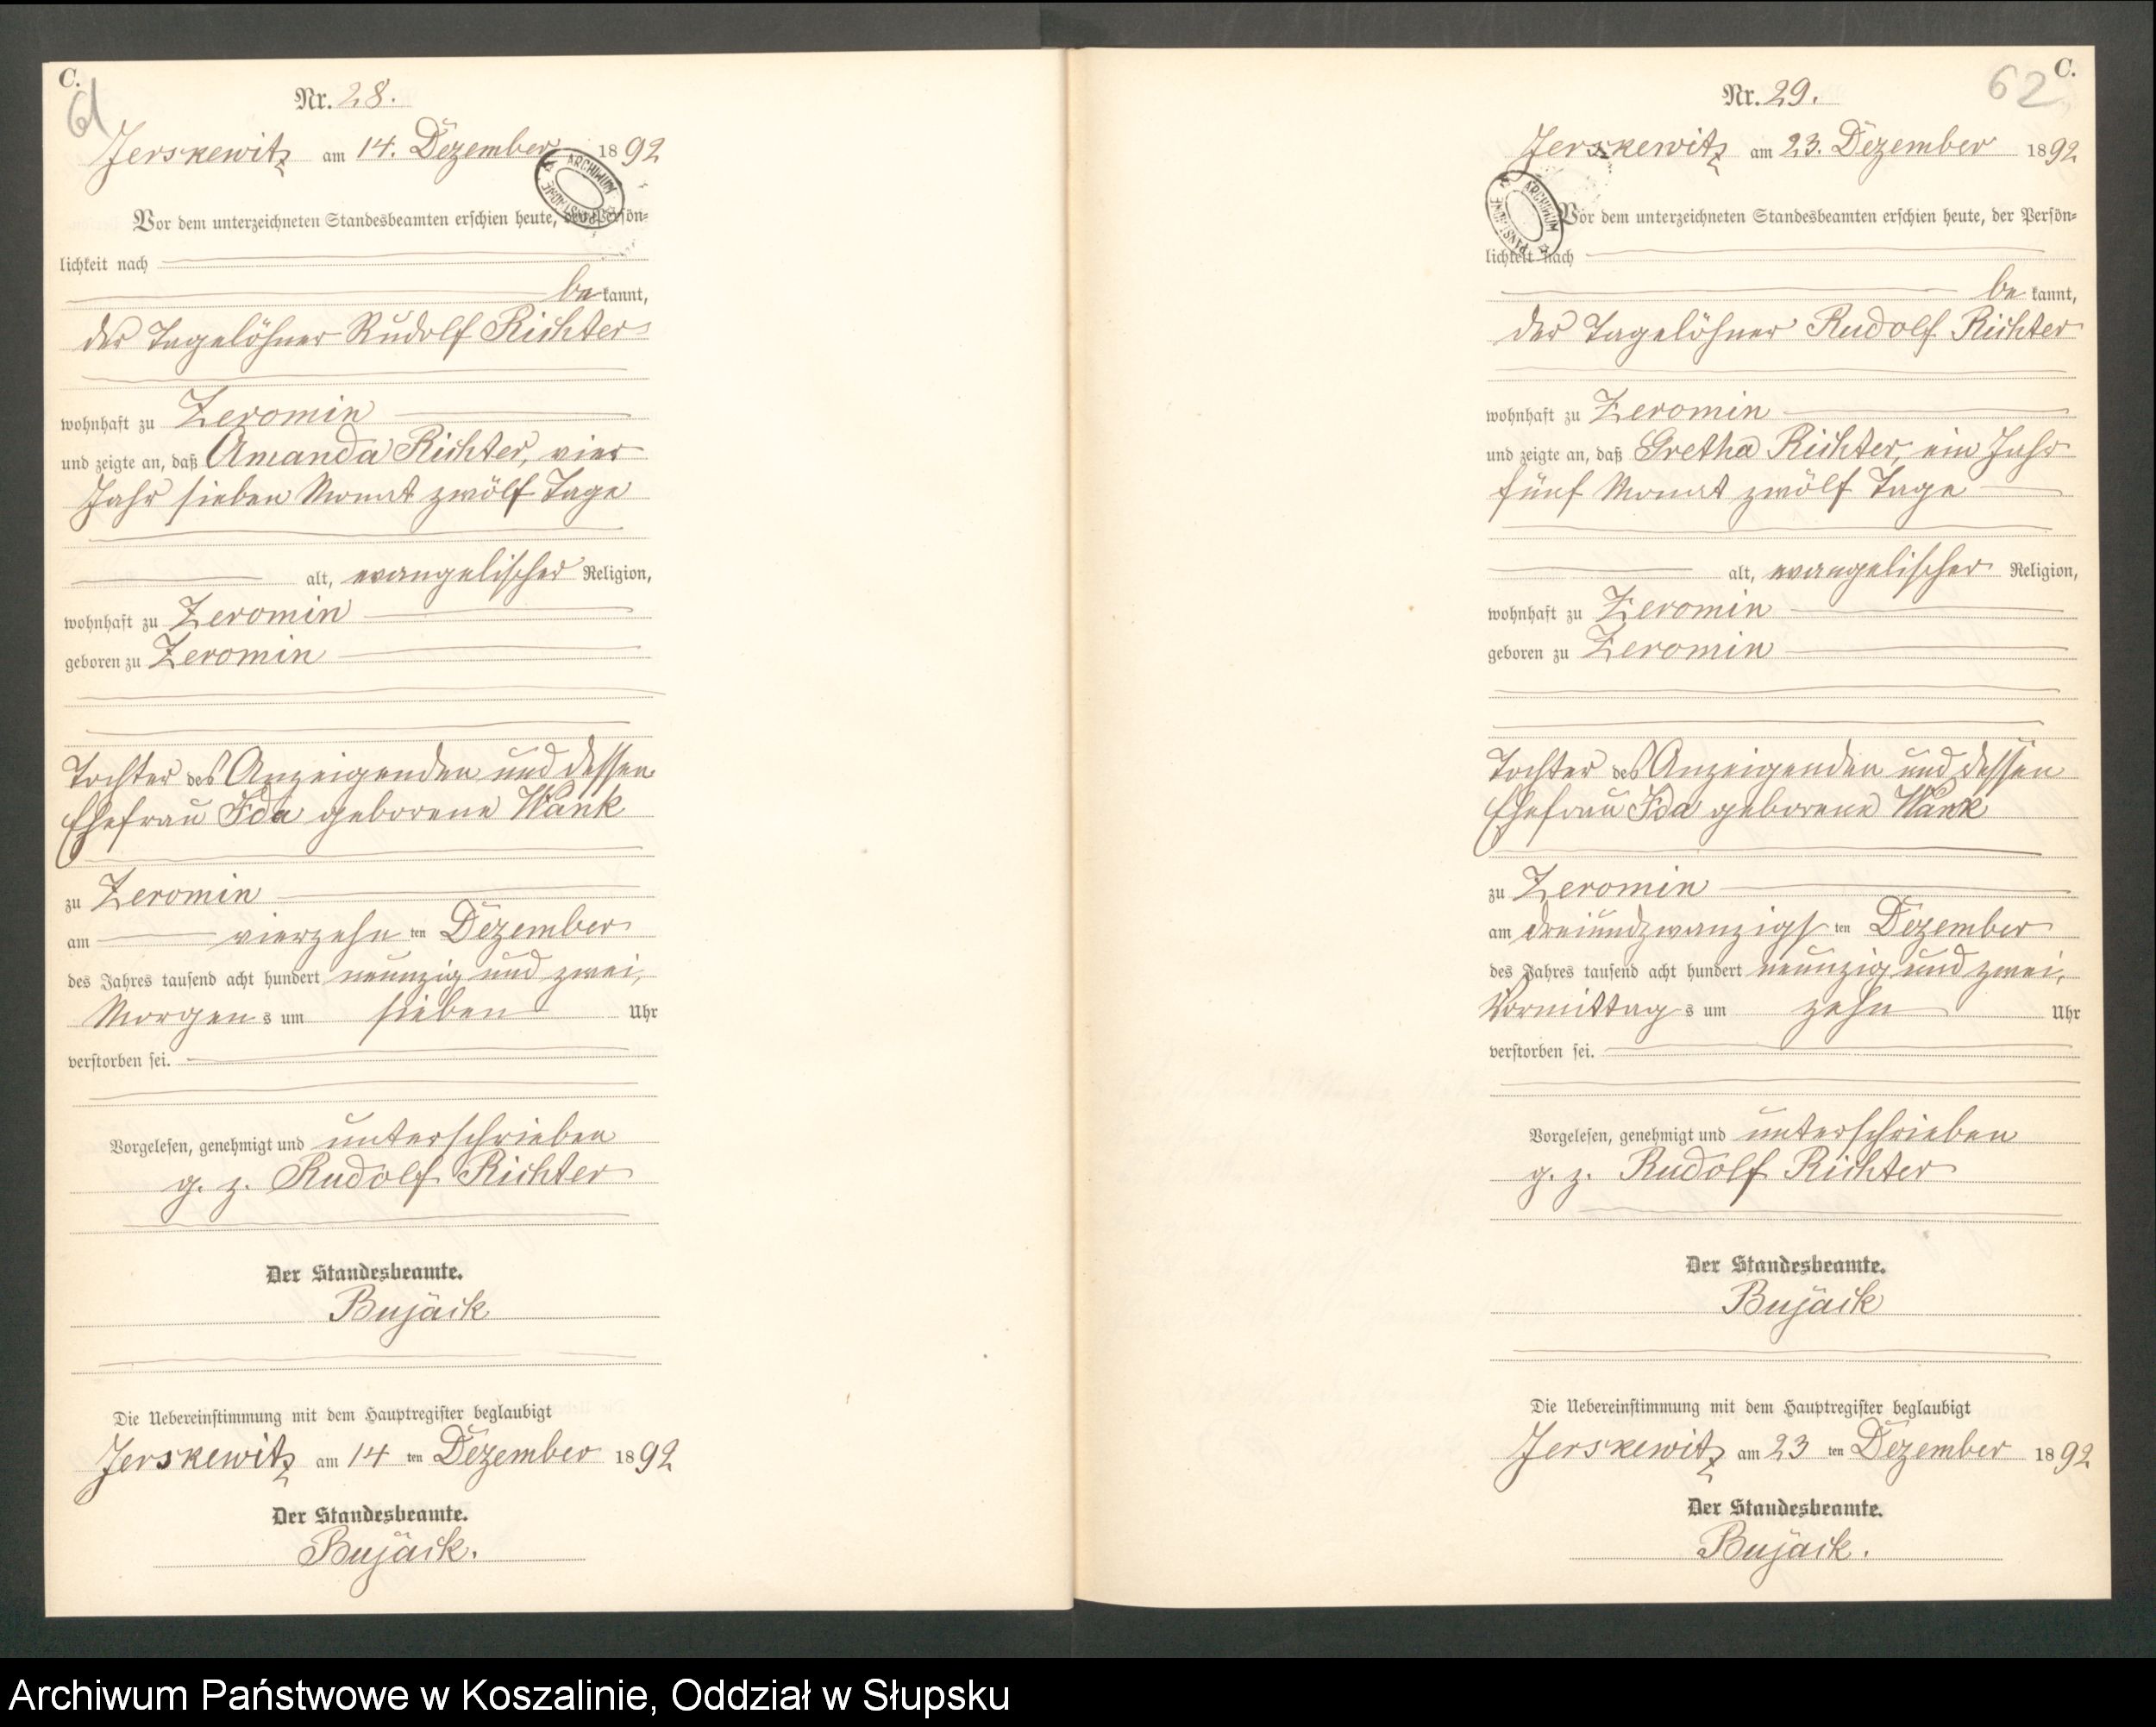 C.
61
Nr. 28.
Jerskewitz am 14. Dezember 1892
ARCHIWUM PAŃSTWOWE
Vor dem unterzeichneten Standesbeamten erschien heute, der Persön-
lichkeit nach
be kannt,
der Tagelöhner Rudolf Richter
wohnhaft zu Zeromin
und zeigte an, daß Amanda Richter, vier
Jahr sieben Monat zwölf Tage
alt, evangelischer Religion,
wohnhaft zu Zeromin
geboren zu Zeromin
Tochter des Anzeigenden und dessen
Ehefrau Ida geborene Wank
zu Zeromin
am vierzehn ten Dezember
des Jahres tausend acht hundert neunzig und zwei,
Morgens um sieben Uhr
verstorben sei.
Vorgelesen, genehmigt und unterschrieben
g. z. Rudolf Richter
Der Standesbeamte.
Bujack
Die Uebereinstimmung mit dem Hauptregister beglaubigt
Jerskewitz am 14 ten Dezember 1892
Der Standesbeamte.
Bujack.
C.
62
Nr. 29.
Jerskewitz am 23. Dezember 1892
ARCHIWUM PAŃSTWOWE
Vor dem unterzeichneten Standesbeamten erschien heute, der Persön-
lichkeit nach
be kannt,
der Tagelöhner Rudolf Richter
wohnhaft zu Zeromin
und zeigte an, daß Gretha Richter, ein Jahr
fünf Monat zwölf Tage
alt, evangelischer Religion,
wohnhaft zu Zeromin
geboren zu Zeromin
Tochter des Anzeigenden und dessen
Ehefrau Ida geborene Wank
zu Zeromin
am dreiundzwanzigs ten Dezember
des Jahres tausend acht hundert neunzig und zwei,
Vormittags um zehn Uhr
verstorben sei.
Vorgelesen, genehmigt und unterschrieben
g. z. Rudolf Richter
Der Standesbeamte.
Bujack
Die Uebereinstimmung mit dem Hauptregister beglaubigt
Jerskewitz am 23 ten Dezember 1892
Der Standesbeamte.
Bujack.
Archiwum Państwowe w Koszalinie, Oddział w Słupsku